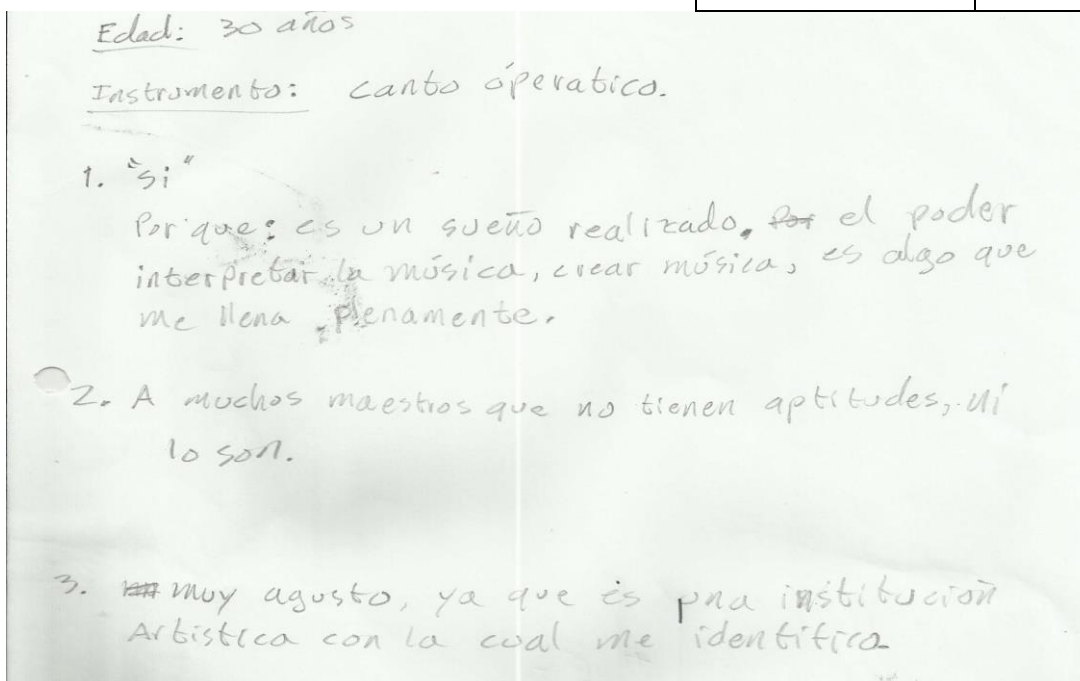 Edad: 30 años
Instrumento: canto óperatico.
1. "si"
Por que: es un sueño realizado. Por el poder
interpretar la música, crear música, es algo que
me llena plenamente.
2. A muchos maestros que no tienen aptitudes, ni
lo son.
3. muy agusto, ya que es una institución
Artistica con la cual me identifico